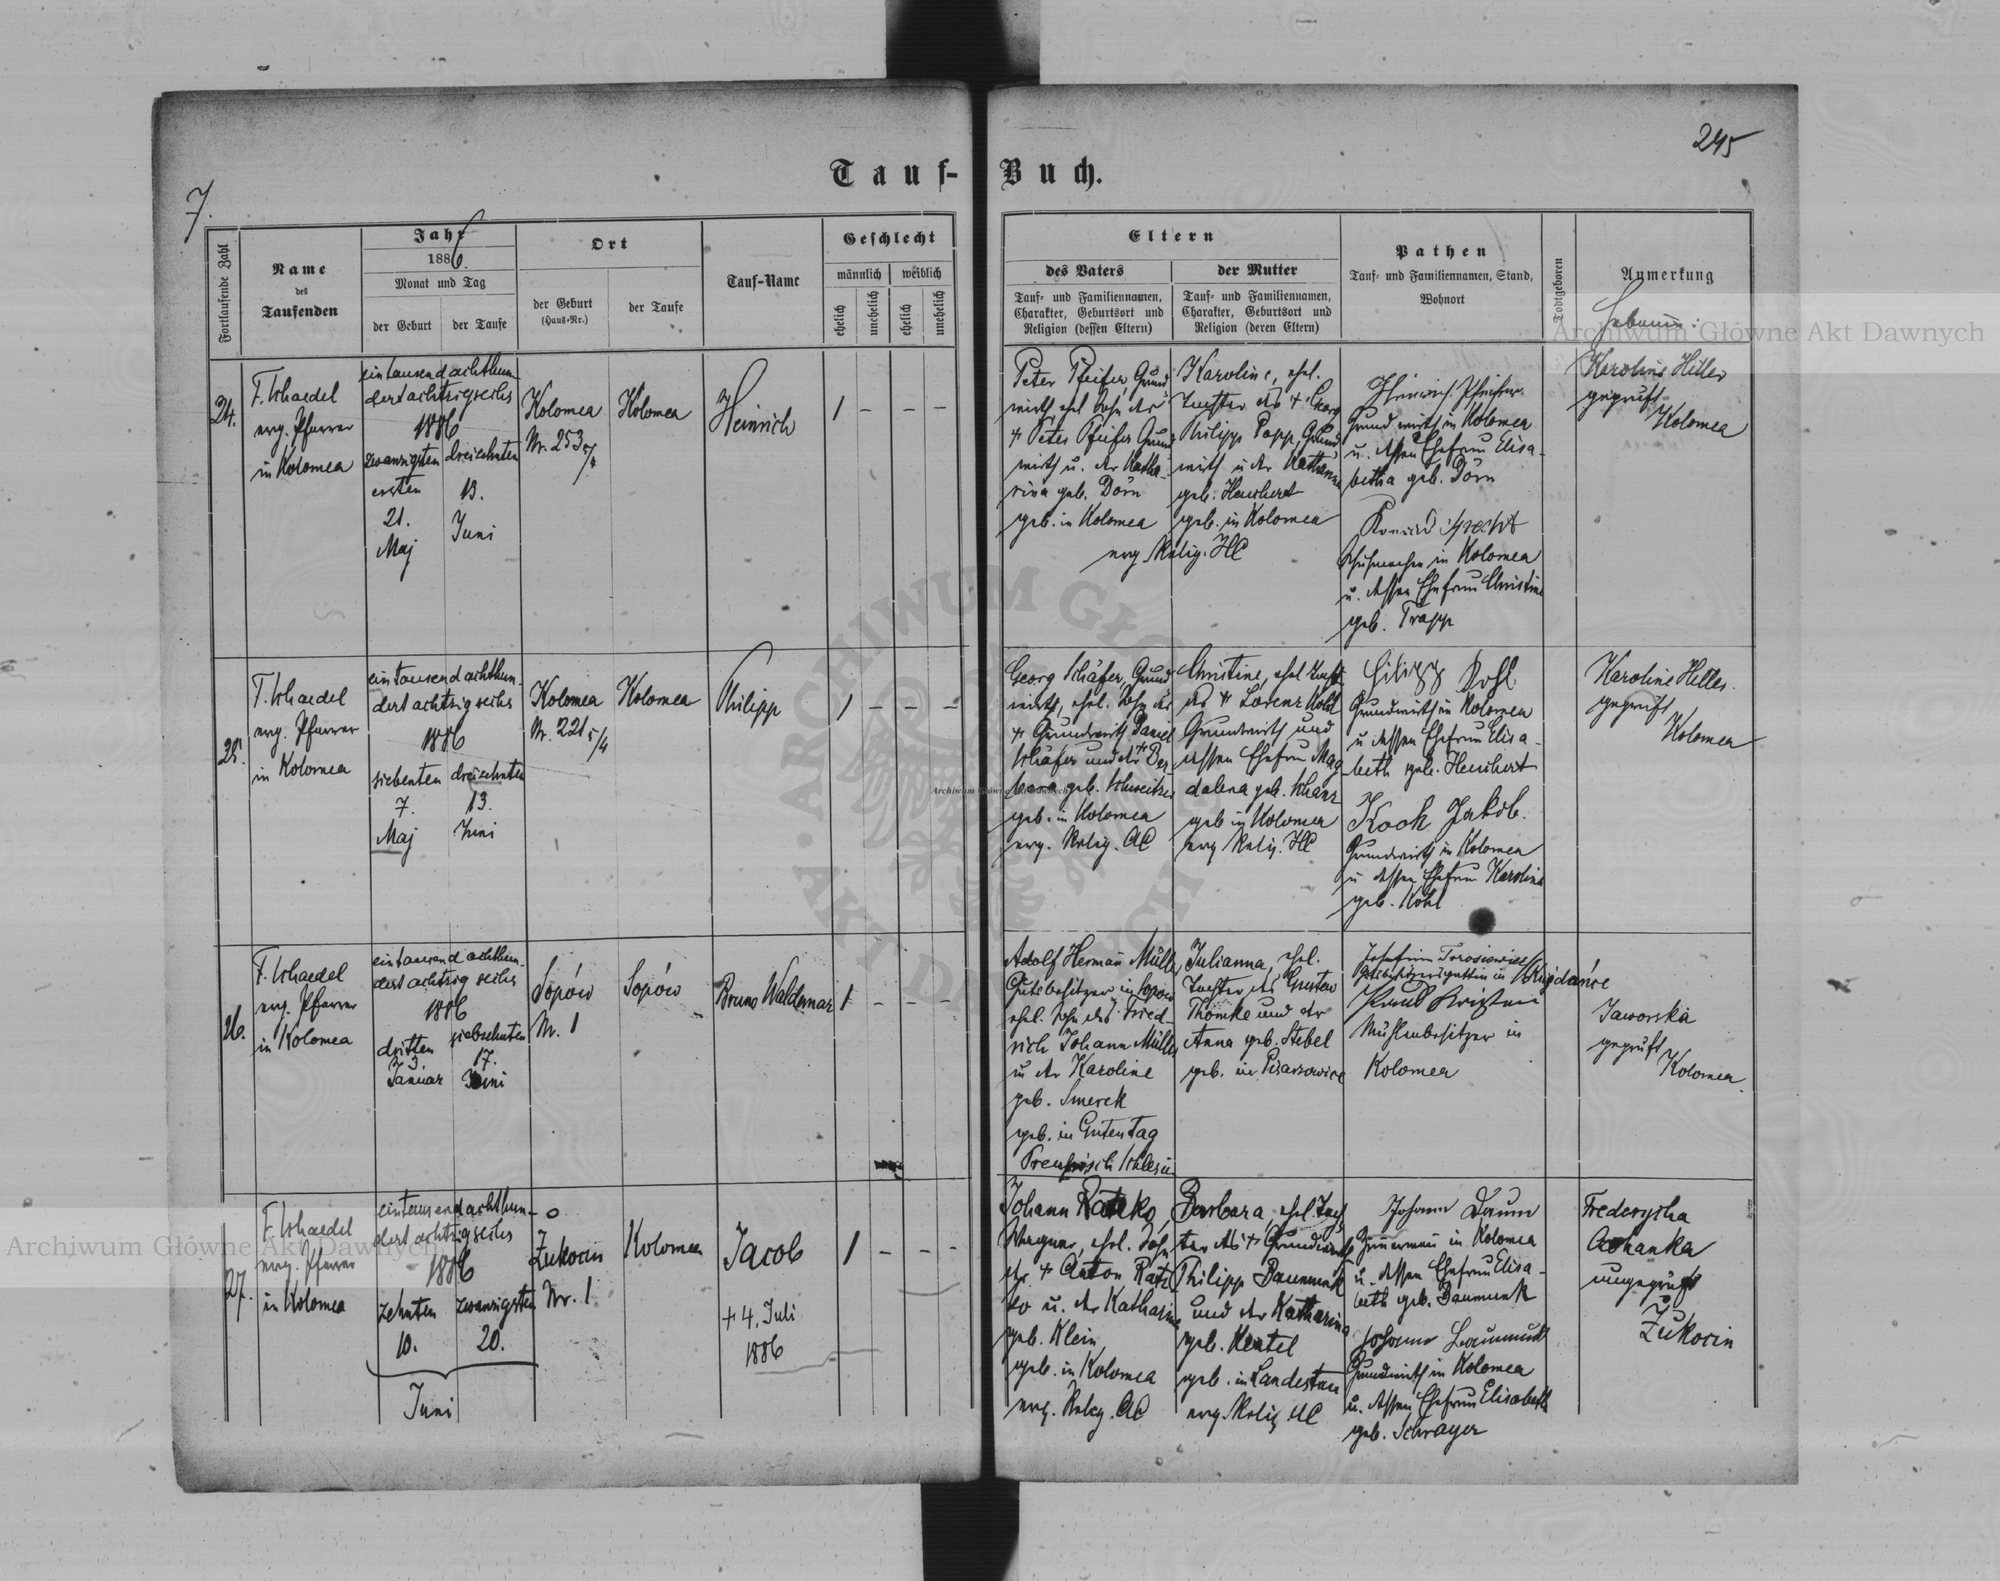 245
Tauf-Buch.
7.
Fortlaufende Zahl
Name
des
Taufenden
Jahr
1886.
Monat und Tag
der Geburt
der Taufe
Ort
der Geburt
(Haus-Nr.)
der Taufe
Tauf-Name
Geschlecht
männlich
weiblich
ehelich
unehelich
ehelich
unehelich
Eltern
des Vaters
Tauf- und Familiennamen,
Charakter, Geburtsort und
Religion (dessen Eltern)
der Mutter
Tauf- und Familiennamen,
Charakter, Geburtsort und
Religion (deren Eltern)
Pathen
Tauf- und Familiennamen, Stand,
Wohnort
Todtgeboren
Anmerkung
24.
F. Schaedel
evg. Pfarrer
in Kolomea
ein tausend achthun-
dert achtzig sechs
1886
zwanzigsten
ersten
21.
Maj
dreizehnten
13.
Juni
Kolomea
Nr. 253 5/4
Kolomea
Heinrich
1 – – –
Peter Pfeifer, Grund
wirth ehel. Sohn des
+ Peter Pfeifer Grund
wirth u. der Katha-
rina geb. Dörn
geb. in Kolomea
evg. Relig. HC
Karoline, ehel.
Tochter des + Georg
Philipp Popp, Grund
wirth u der Katharina
geb. Heuchert
geb. in Kolomea
Heinrich Pfeifer
Grundwirth in Kolomea
u. dessen Ehefrau Elisa-
betha geb. Dörn
Konrad Specht
Schuhmacher in Kolomea
u. dessen Ehefrau Christine
geb. Trapp
Karoline Hiller
geprüft
Kolomea
25.
F. Schaedel
evg. Pfarrer
in Kolomea
ein tausend achthun-
dert achtzig sechs
1886
siebenten
7.
Maj
dreizehnten
13.
Juni
Kolomea
Nr. 221 5/4
Kolomea
Philipp
1 – – –
Georg Schäfer, Grund
wirth, ehel. Sohn des
+ Grundwirth Daniel
Schäfer und der + Bar-
bara geb. Schweitzer
geb. in Kolomea
evg. Relig. AC
Christine, ehel. Tocht
des + Lorenz Kohl
Grundwirth und
dessen Ehefrau Mag
dalena geb. Schanz
geb in Kolomea
evg Relig. HC
Filipp Kohl
Grundwirth in Kolomea
u dessen Ehefrau Elisa-
beth geb. Heuchert
Kooh Jakob.
Grundwirth in Kolomea
u dessen Ehefrau Karolina
geb. Kohl
Karoline Hiller
geprüft
Kolomea
26.
F. Schaedel
evg. Pfarrer
in Kolomea
ein tausend achthun-
dert achtzig sechs
1886
dritten
3.
Januar
siebzehnten
17.
Juni
Sopów
Nr. 1
Sopów
Bruno Waldemar
1 – – –
Adolf Herman Müller
Gutsbesitzer in Sopów
ehel. Sohn des Fried-
rich Johann Müller
u der Karoline
geb. Smerek
geb. in Guten Tag
Preußisch Schlesien
Julianna, ehel.
Tochter des Gustav
Thomke und der
Anna geb. Stebel
geb. in Pisarzowice
Josefine Torosiewicz
Gutsbesitzersgattin in
Mühlenbesitzer in
Kolomea
Jaworska
geprüft
Kolomea
27.
F. Schaedel
evg. Pfarrer
in Kolomea
ein tausend achthun-
dert achtzig sechs
1886
zehnten
10.
zwanzigsten
20.
Juni
Żukocin
Nr. 1
Kolomea
Jacob
+ 4. Juli
1886
1 – – –
Johann Ratzko
Wagner, ehel. Sohn
des + Anton Ratz
ko u. der Katharine
geb. Klein
geb. in Kolomea
evg. Relig. AC
Barbara, ehel. Toch
ter des + Grundwirths
Philipp Baumunk
und der Katharina
geb. Kentel
geb. in Landestreu
evg. Relig. HC
Johann Daum
Zimmermann in Kolomea
u. dessen Ehefrau Elisa-
beth geb. Baumunk
Johann Baumunk
Grundwirth in Kolomea
u. dessen Ehefrau Elisabeth
geb. Schrayer
Frederyka
ungeprüft
Żukocin
Archiwum Główne Akt Dawnych
Archiwum Główne Akt Dawnych
Archiwum Główne Akt Dawnych